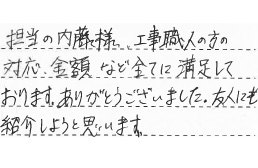 担当の内藤様、工事職人の方の
対応、金額など全てに満足して
おります。ありがとうございました。友人にも
紹介しようと思います。